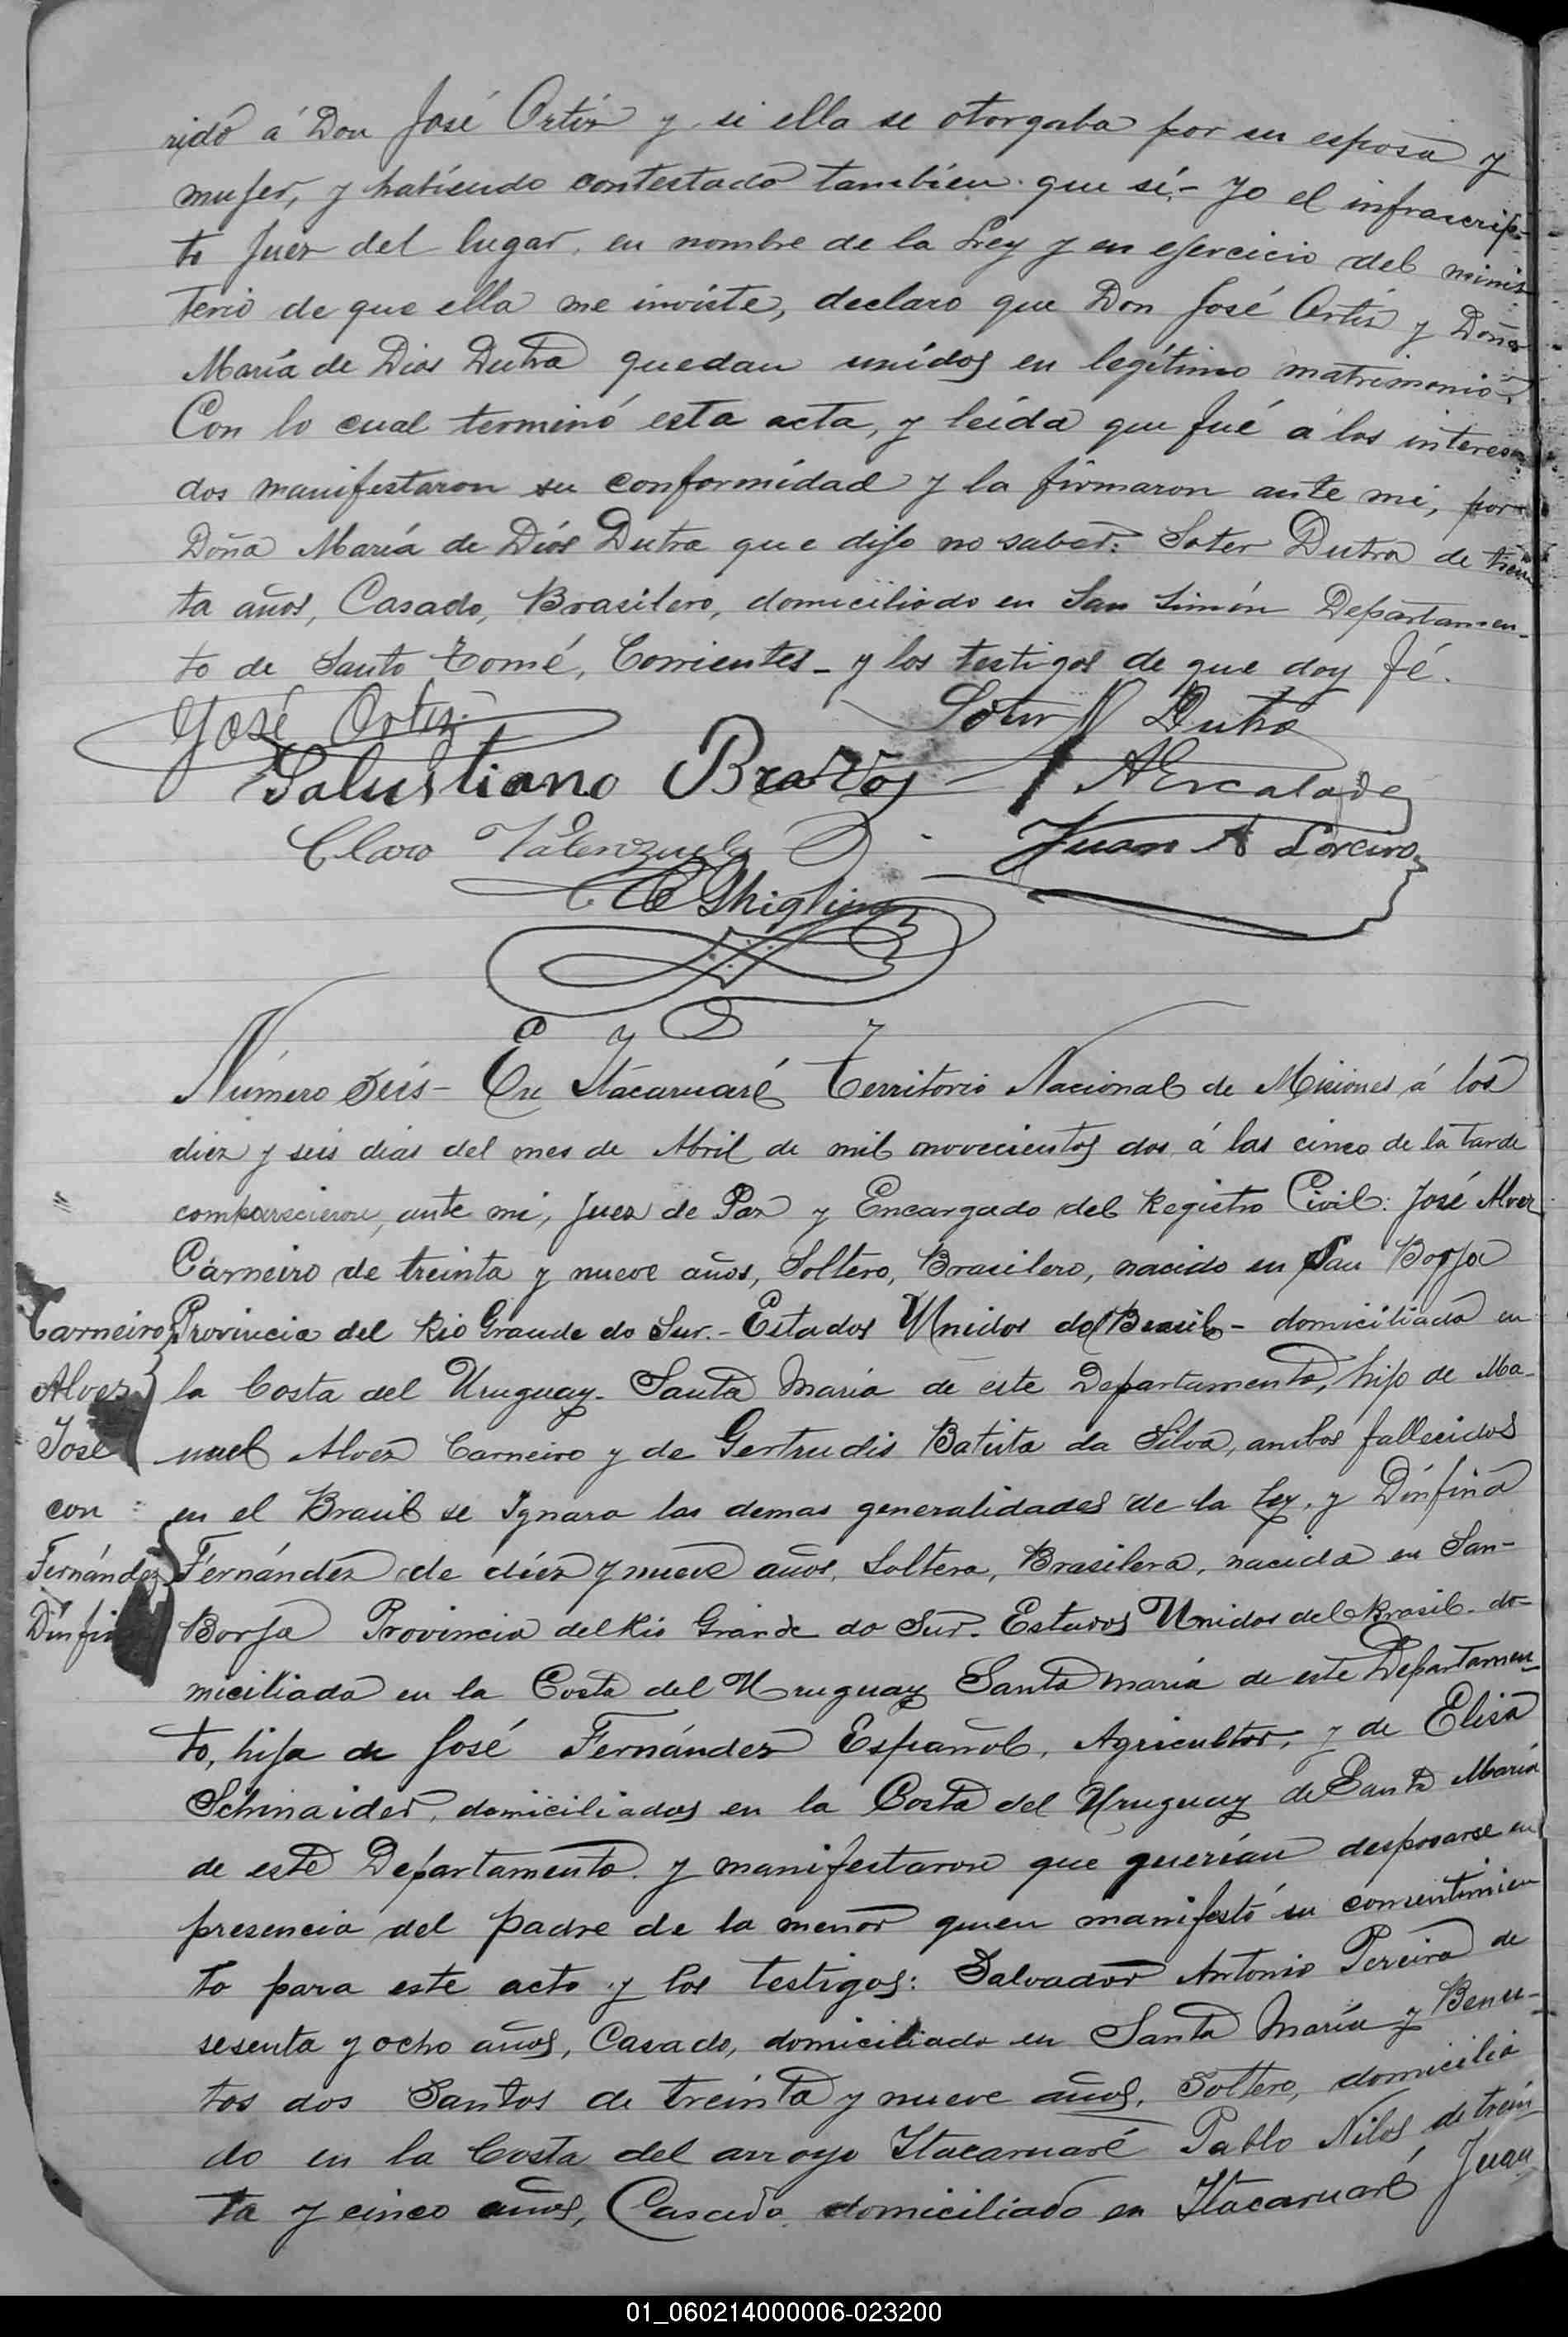 rido á Don José Ortiz y si ella se otorgaba por su esposa y
mujer, y habiendo contestado tambien que sí - Yo el infrascrip-
to Juez del lugar, en nombre de la Ley y en ejercicio del minis
terio de que ella me inviste, declaro que Don José Ortiz y Doña
María de Dios Dutra quedan unidos en legítimo matrimonio.
Con lo cual terminó esta acta, y leida que fué á los interesa
dos manifestaron su conformidad y la firmaron ante mi, por
Doña María de Diós Dutra que dijo no saber: Soter Dutra de trein
ta años, Casado, Brasilero, domiciliado en San Simón Departamen-
to de Santo Tomé, Corrientes - y los testigos de que doy fé.
José Ortiz
Soter N Dutra
Salustiano Bravos
A Escalada
Claro Valenzuela
Juan A Loreiro
C Ghiglino
Número Seis - En Itacaruaré Territorio Nacional de Misiones á los
diez y seis dias del mes de Abril de mil novecientos dos á las cinco de la tarde
comparecieron, ante mi, Juez de Paz y Encargado del Registro Civil: José Alvez
Carneiro de treinta y nueve años, Soltero, Brasilero, nacido en San Borja
Provincia del Rio Grande do Sur. - Estados Unidos del Brasil - domiciliado en
la Costa del Uruguay - Santa María de este Departamento, hijo de Ma-
nuel Alvez Carneiro y de Gertrudis Batista da Silva, ambos fallecidos
en el Brasil se Ignara las demas generalidades de la Ley. y Dinfina
Fernández de diez y nueve años, Soltera, Brasilera, nacida en San-
Borja Provincia del Rio Grande do Sur. Estados Unidos del Brasil - do-
miciliada en la Costa del Uruguay Santa María de este Departamen-
to, hija de José Fernández Español, Agricultor, y de Elisa
Schinaider, domiciliados en la Costa del Uruguay de Santa María
de este Departamento y manifestaron que querían desposarse en
presencia del padre de la menor quien manifestó su consentimien
to para este acto y los testigos: Salvador Antonio Pereira de
sesenta y ocho años, Casado, domiciliado en Santa María y Benu-
tos dos Santos de treinta y nueve años, Soltero, domicilia
do en la Costa del arroyo Itacaruaré Pablo Nilos de trein
ta y cinco años, Casado domiciliado en Itacaruaré Juan
Carneiro
Alvez
José
con
Fernández
01_060214000006-023200